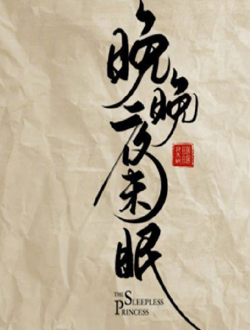 晚晚夜未眠
THE SLEEPLESS
PRINCESS